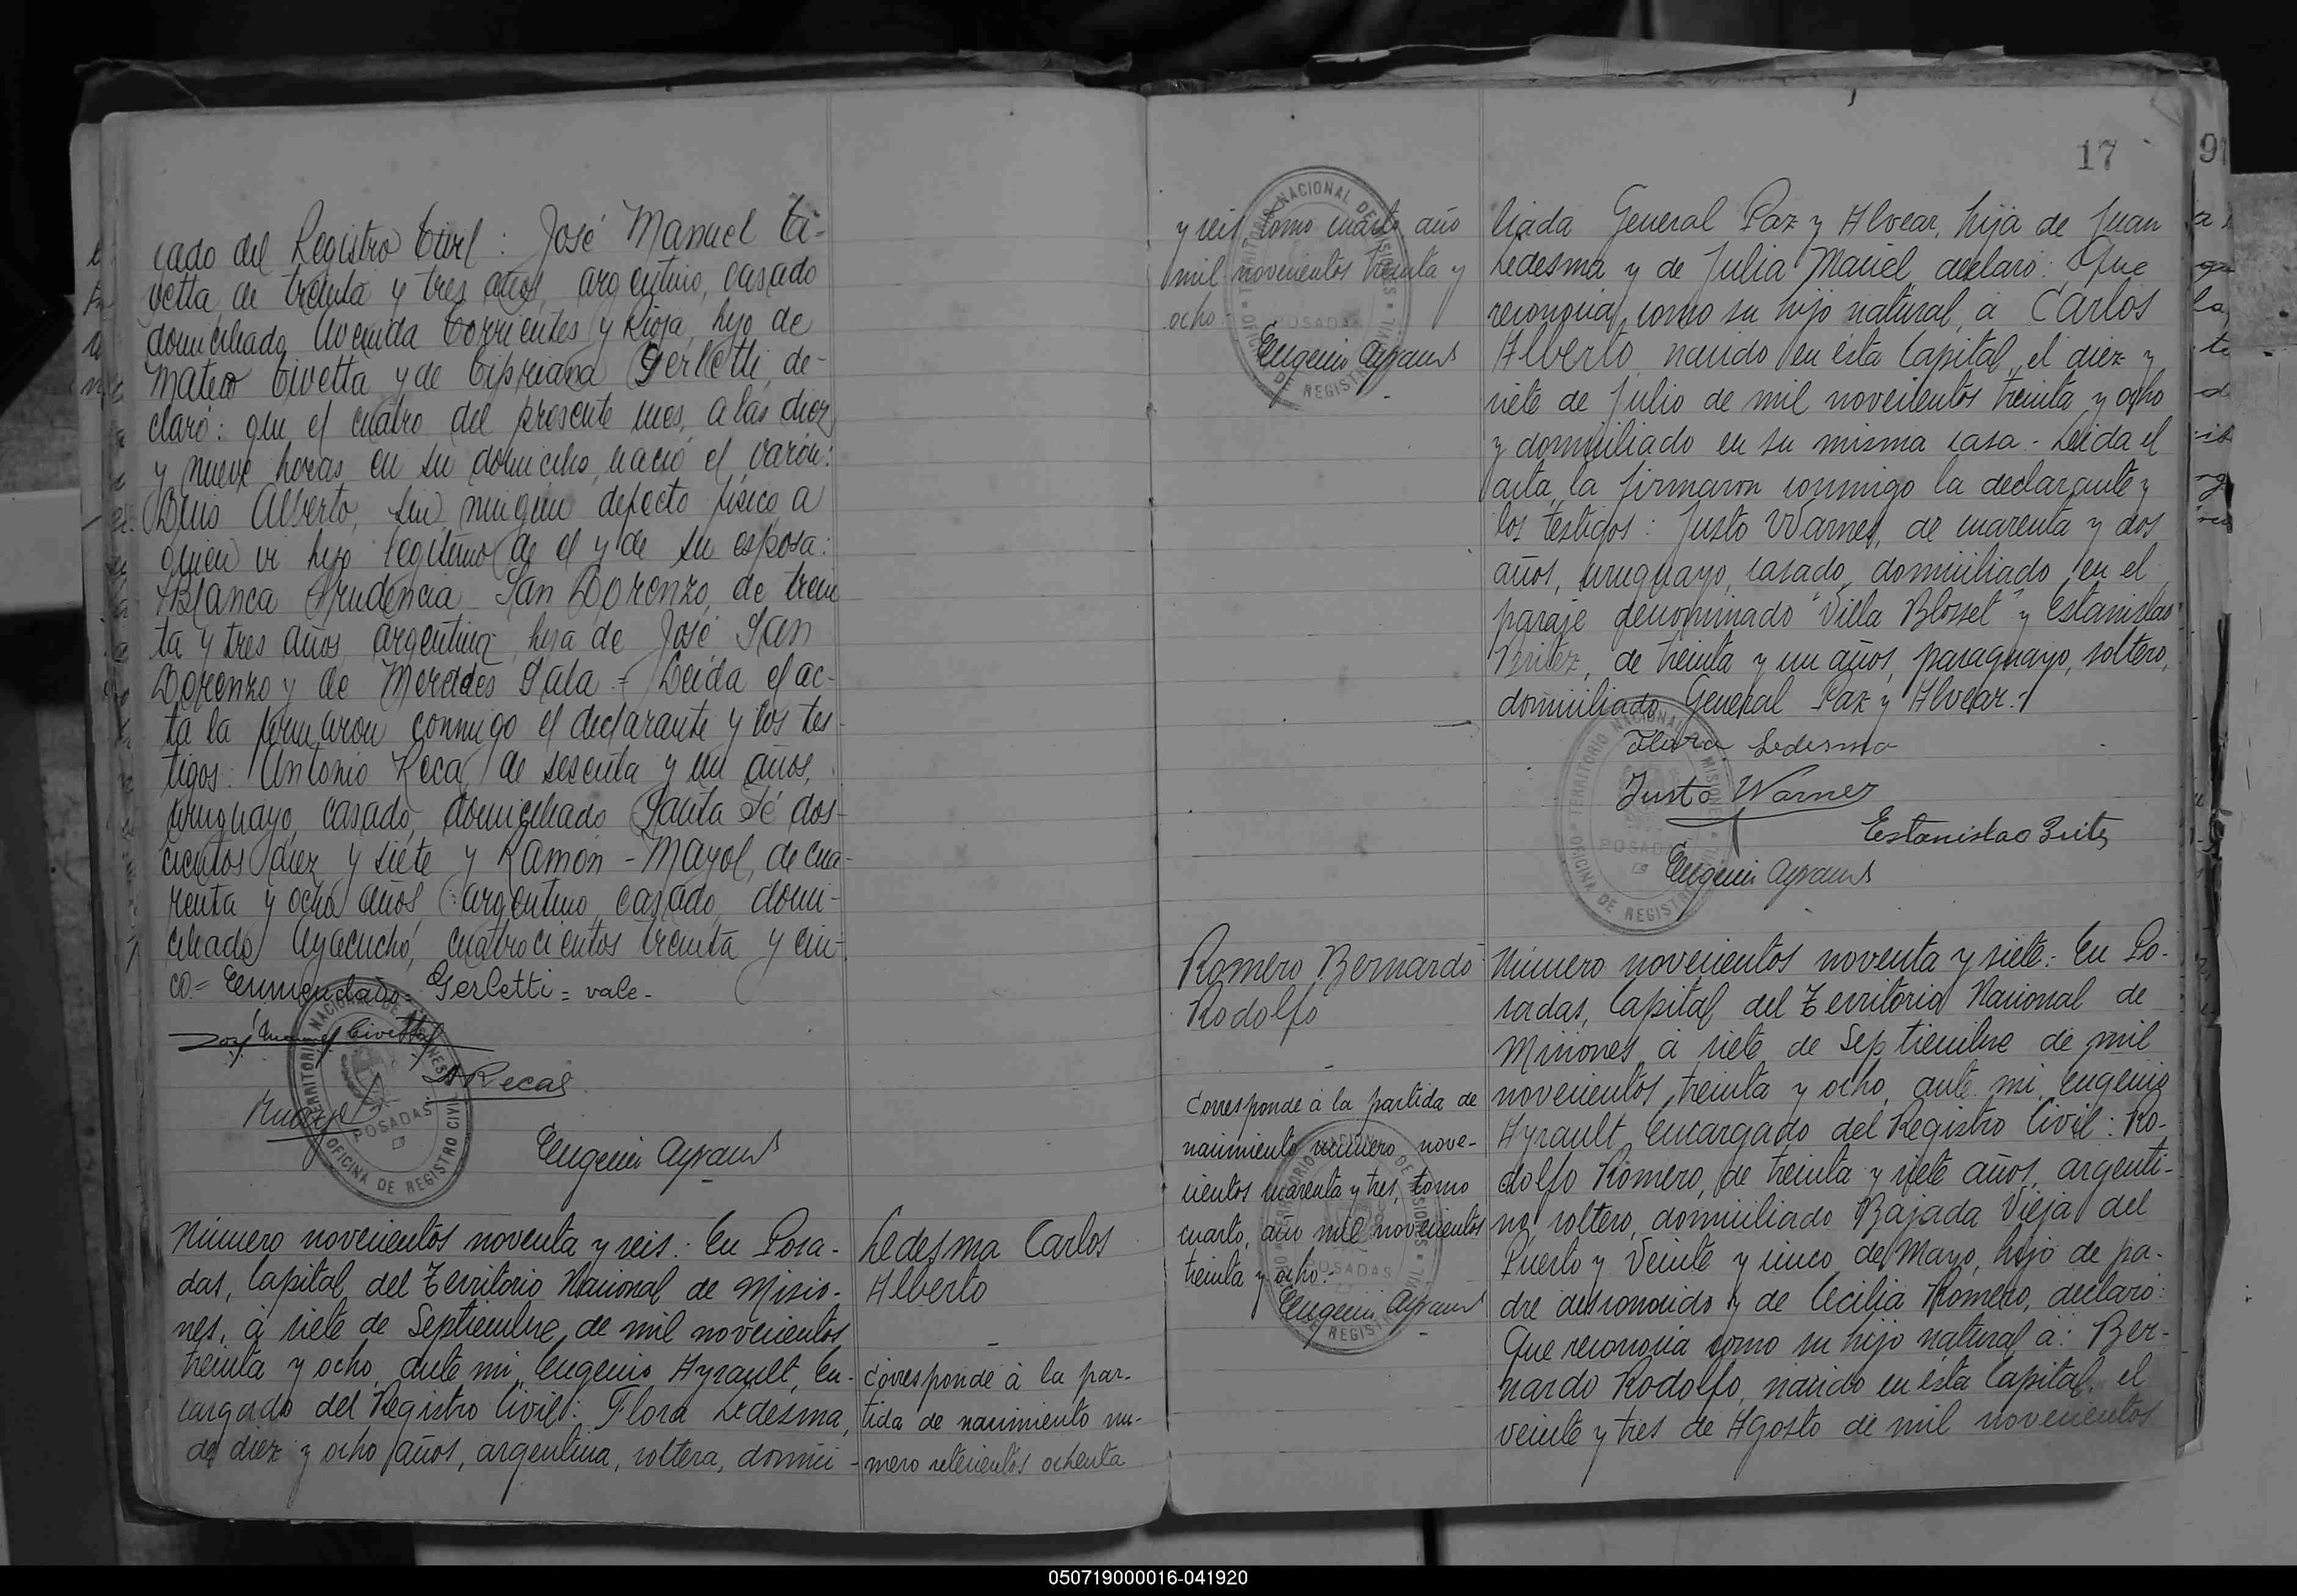 cado del Registro Civil: José Manuel Ci-
vetta, de treinta y tres años, argentino, casado
domiciliado Avenida Corrientes y Rioja, hijo de
Mateo Civetta y de Cipriana Gerletti, de-
claró: que el cuatro del presente mes, a las diez
y nueve horas, en su domicilio, nació el varón:
Luis Alberto, sin ningún defecto físico, a
quien vi hijo legítimo de el y de su esposa:
Blanca Prudencia San Lorenzo, de trein
ta y tres años, argentina, hija de José San
Lorenzo y de Mercedes Sala = Leida el ac-
ta la firmaron conmigo el declarante y los tes-
tigos: Antonio Reca, de sesenta y un años,
uruguayo, casado, domiciliado Santa Fé dos-
cientos diez y siete y Ramón - Mayol, de cua-
renta y ocho años, argentino, casado, domi-
ciliado Ayacucho, cuatrocientos treinta y cin-
co.= Enmendado= Gerletti = vale -
José Manuel Civetta
A Recas
RMayol
Eugenio Ayrault
TERRITORIO NACIONAL DE MISIONES
POSADAS
OFICINA DE REGISTRO CIVIL
Número novecientos noventa y seis: En Posa-
das, Capital del Territorio Nacional de Misio-
nes, á siete de Septiembre de mil novecientos
treinta y ocho, ante mi, Eugenio Ayrault, En-
cargado del Registro Civil: Flora Ledesma,
de diez y ocho años, argentina, soltera, domici-
Ledesma Carlos
Alberto
Corresponde á la par-
tida de nacimiento nu-
mero setecientos ochenta
y seis tomo cuarto año
mil novecientos treinta y
ocho.-
Eugenio Ayrault
17
liada General Paz y Alvear, hija de Juan
Ledesma y de Julia Maciel, declaró: Que
reconocia como su hijo natural, á Carlos
Alberto, nacido en ésta Capital, el diez y
siete de Julio de mil novecientos treinta y ocho
y domiciliado en su misma casa - Leida el
acta, la firmaron conmigo la declarante y
los testigos: Justo Warnes, de cuarenta y dos
años, uruguayo, casado, domiciliado en el
paraje denominado "Villa Blosset" y Estanislao
Britez, de treinta y un años, paraguayo, soltero,
domiciliado General Paz y Alvear.-
Flora Ledesma
Justo Warnes
Estanislao Britez
Eugenio Ayrault
Romero Bernardo
Rodolfo
Corresponde á la partida de
nacimiento número nove-
cientos cuarenta y tres, tomo
cuarto, año mil novecientos
treinta y ocho.-
Eugenio Ayrault
Número novecientos noventa y siete: En Po-
sadas, Capital del Territorio Nacional de
Misiones, á siete de Septiembre de mil
novecientos treinta y ocho, ante mi, Eugenio
Ayrault, Encargado del Registro Civil: Ro-
dolfo Romero, de treinta y siete años, argenti-
no, soltero, domiciliado Bajada Vieja del
Puerto y Veinte y cinco de Mayo, hijo de pa-
dre desconocido y de Cecilia Romero, declaró:
Que reconocia como su hijo natural á: Ber-
nardo Rodolfo, nacido en ésta Capital, el
veinte y tres de Agosto de mil novecientos
050719000016-041920